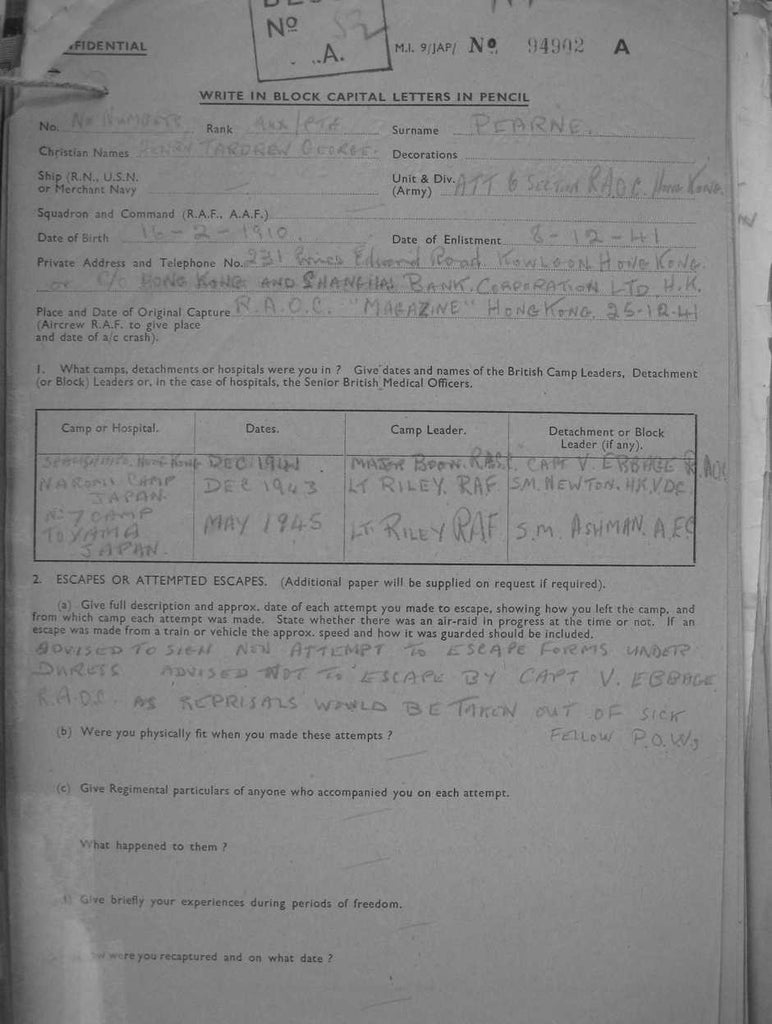 FIDENTIAL
Nº 52
A.
M.I. 9/JAP/ Nº 94902 A
WRITE IN BLOCK CAPITAL LETTERS IN PENCIL
No. NO NUMBER Rank AUX/PTE Surname PEARNE.
Christian Names HENRY TARDREW GEORGE. Decorations
Ship (R.N., U.S.N. or Merchant Navy Unit & Div. (Army) ATT 6 SECTION R.A.O.C. HONG KONG.
Squadron and Command (R.A.F., A.A.F.)
Date of Birth 16-2-1910. Date of Enlistment 8-12-41
Private Address and Telephone No. 231 Edward Road. KOWLOON HONG KONG.
or C/O HONG KONG AND SHANGHAI BANK. CORPORATION LTD. H.K.
Place and Date of Original Capture R.A.O.C. "MAGAZINE" HONG KONG. 25-12-41
(Aircrew R.A.F. to give place
and date of a/c crash).
1. What camps, detachments or hospitals were you in ? Give dates and names of the British Camp Leaders, Detachment
(or Block) Leaders or, in the case of hospitals, the Senior British Medical Officers.
Camp or Hospital. Dates. Camp Leader. Detachment or Block Leader (if any).
HONG KONG DEC 1941 MAJOR BOON. RASC. CAPT V. EBBAGE R.AOC
NARUMI CAMP JAPAN. DEC 1943 LT RILEY. RAF. S.M. NEWTON. H.K.V.D.C.
No 7 CAMP TOYAMA JAPAN. MAY 1945 LT. RILEY RAF S.M. ASHMAN. A.EC
2. ESCAPES OR ATTEMPTED ESCAPES. (Additional paper will be supplied on request if required).
(a) Give full description and approx. date of each attempt you made to escape, showing how you left the camp, and
from which camp each attempt was made. State whether there was an air-raid in progress at the time or not. If an
escape was made from a train or vehicle the approx. speed and how it was guarded should be included.
ADVISED TO SIGN NON ATTEMPT TO ESCAPE FORMS UNDER
DURESS. ADVISED NOT TO ESCAPE BY CAPT V. EBBAGE
R.A.O.C. AS REPRISALS WOULD BE TAKEN OUT OF SICK
FELLOW P.O.W.s
(b) Were you physically fit when you made these attempts ?
(c) Give Regimental particulars of anyone who accompanied you on each attempt.
What happened to them ?
Give briefly your experiences during periods of freedom.
were you recaptured and on what date ?